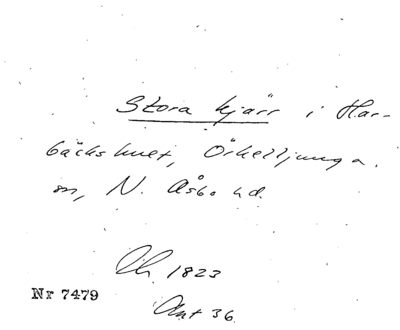 Stora kjärr i Har-
bäckshult, Örkelljunga.
sn, N. Åsbo hd.
Ch. 1823
Akt 36.
Nr 7479